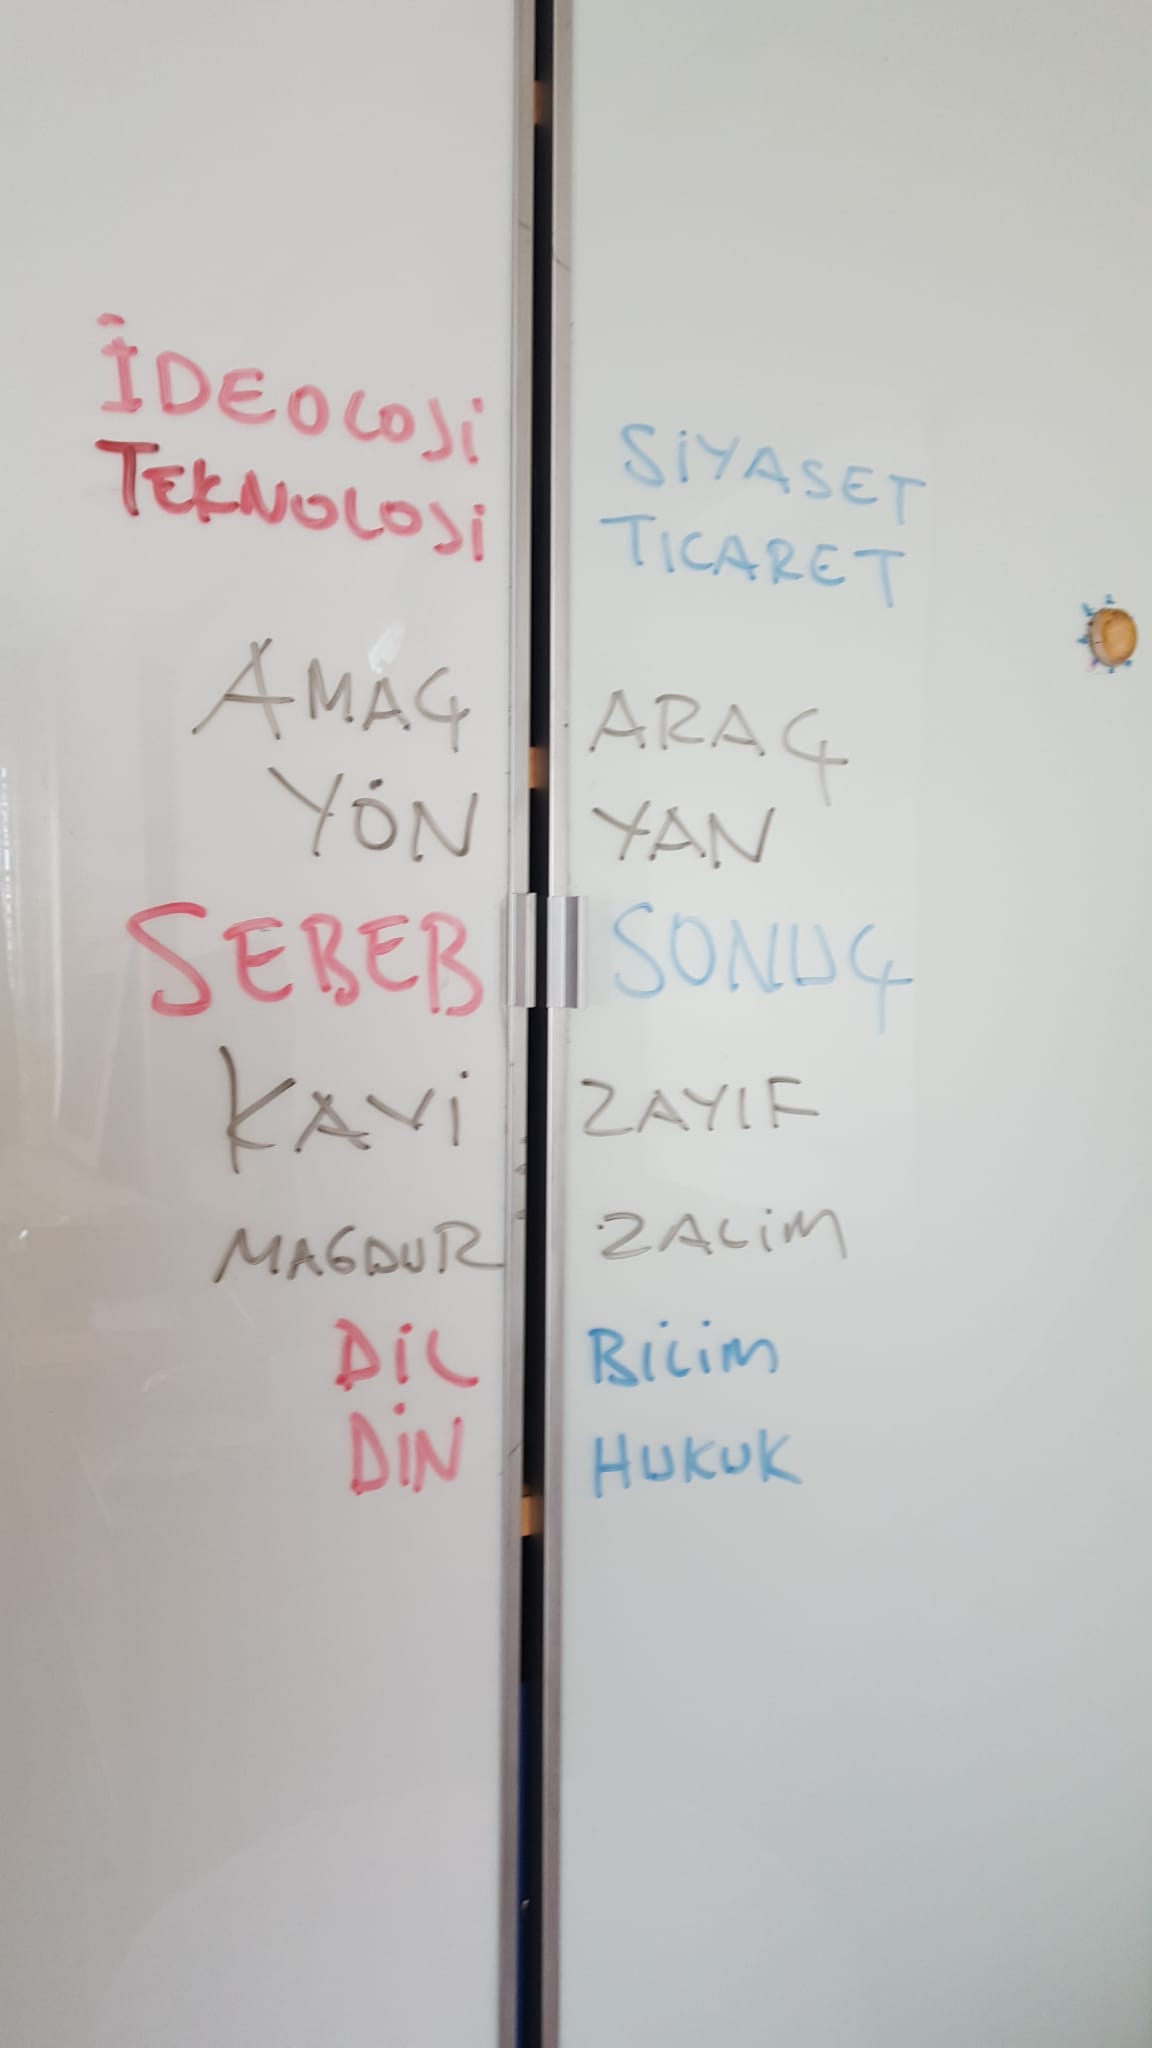 İDEOLOJİ
TEKNOLOJİ
AMAÇ
YÖN
SEBEB
KAVİ
MAGDUR
DİL
DİN
SİYASET
TICARET
ARAÇ
YAN
SONUÇ
ZAYIF
ZALİM
BİLİM
HUKUK